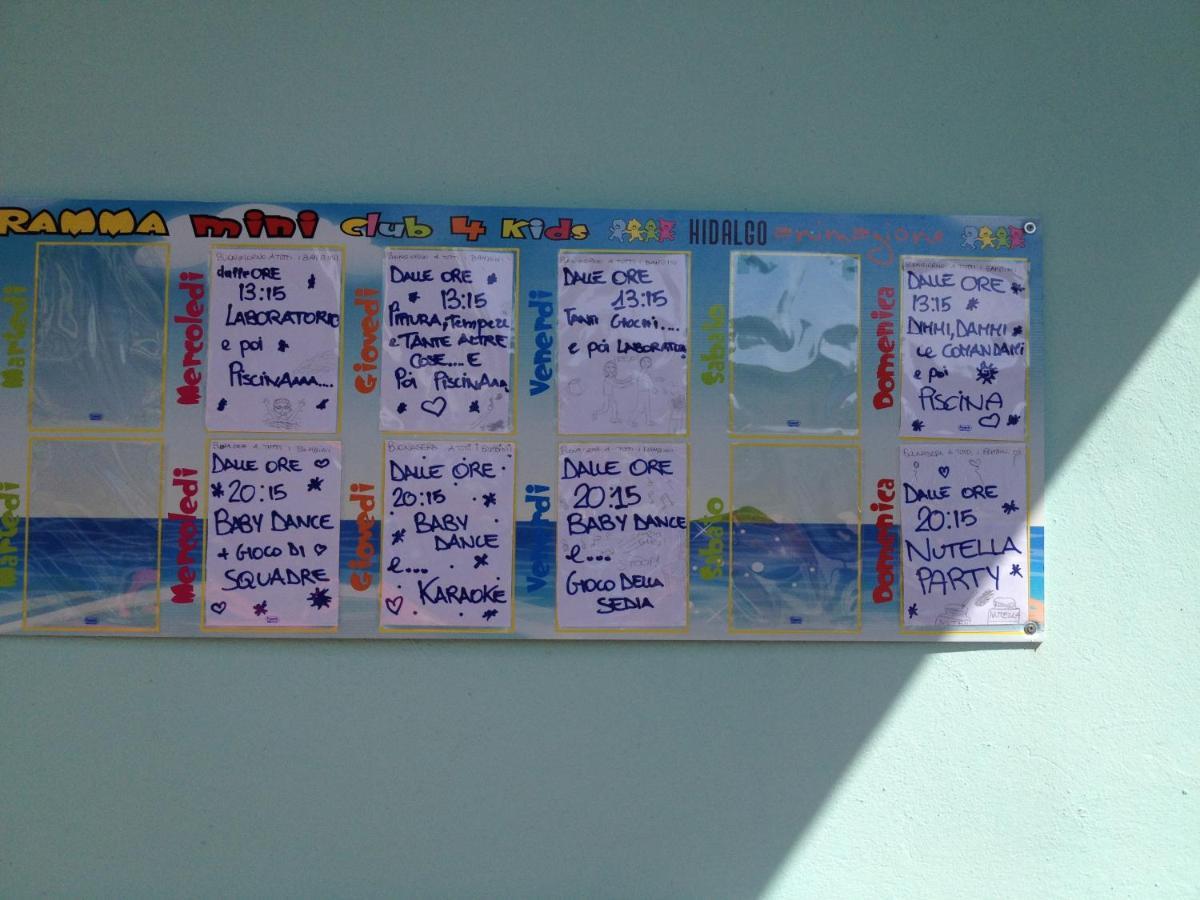 RAMMA mini Club 4 Kids HIDALGO animazione
Martedì
Mercoledì
BUONGIORNO A TUTTI I BAMBINI
dalle ORE
13:15
LABORATORIO
e poi
PISCINAAAA....
Giovedì
BUONGIORNO A TUTTI I BAMBINI
DALLE ORE
13:15
PITTURA, TEMPERE
e TANTE ALTRE
COSE.... E
POI PISCINAAA
Venerdì
BUONGIORNO A TUTTI I BAMBINI
DALLE ORE
13:15
TANTI GIOCHI....
e poi LABORATORIO
Sabato
Domenica
BUONGIORNO A TUTTI I BAMBINI
DALLE ORE
13:15
DIMMI, DAMMI
le COMANDAMI
e poi
PISCINA
Martedì
Mercoledì
BUONASERA A TUTTI I BAMBINI
DALLE ORE
20:15
BABY DANCE
+ GIOCO DI
SQUADRE
Giovedì
BUONASERA A TUTTI I BAMBINI
DALLE ORE
20:15
BABY
DANCE
e...
KARAOKE
Venerdì
BUONASERA A TUTTI I BAMBINI
DALLE ORE
20:15
BABY DANCE
e....
GIOCO DELLA
SEDIA
Sabato
Domenica
BUONASERA A TUTTI I BAMBINI
DALLE ORE
20:15
NUTELLA
PARTY
NUTELLA